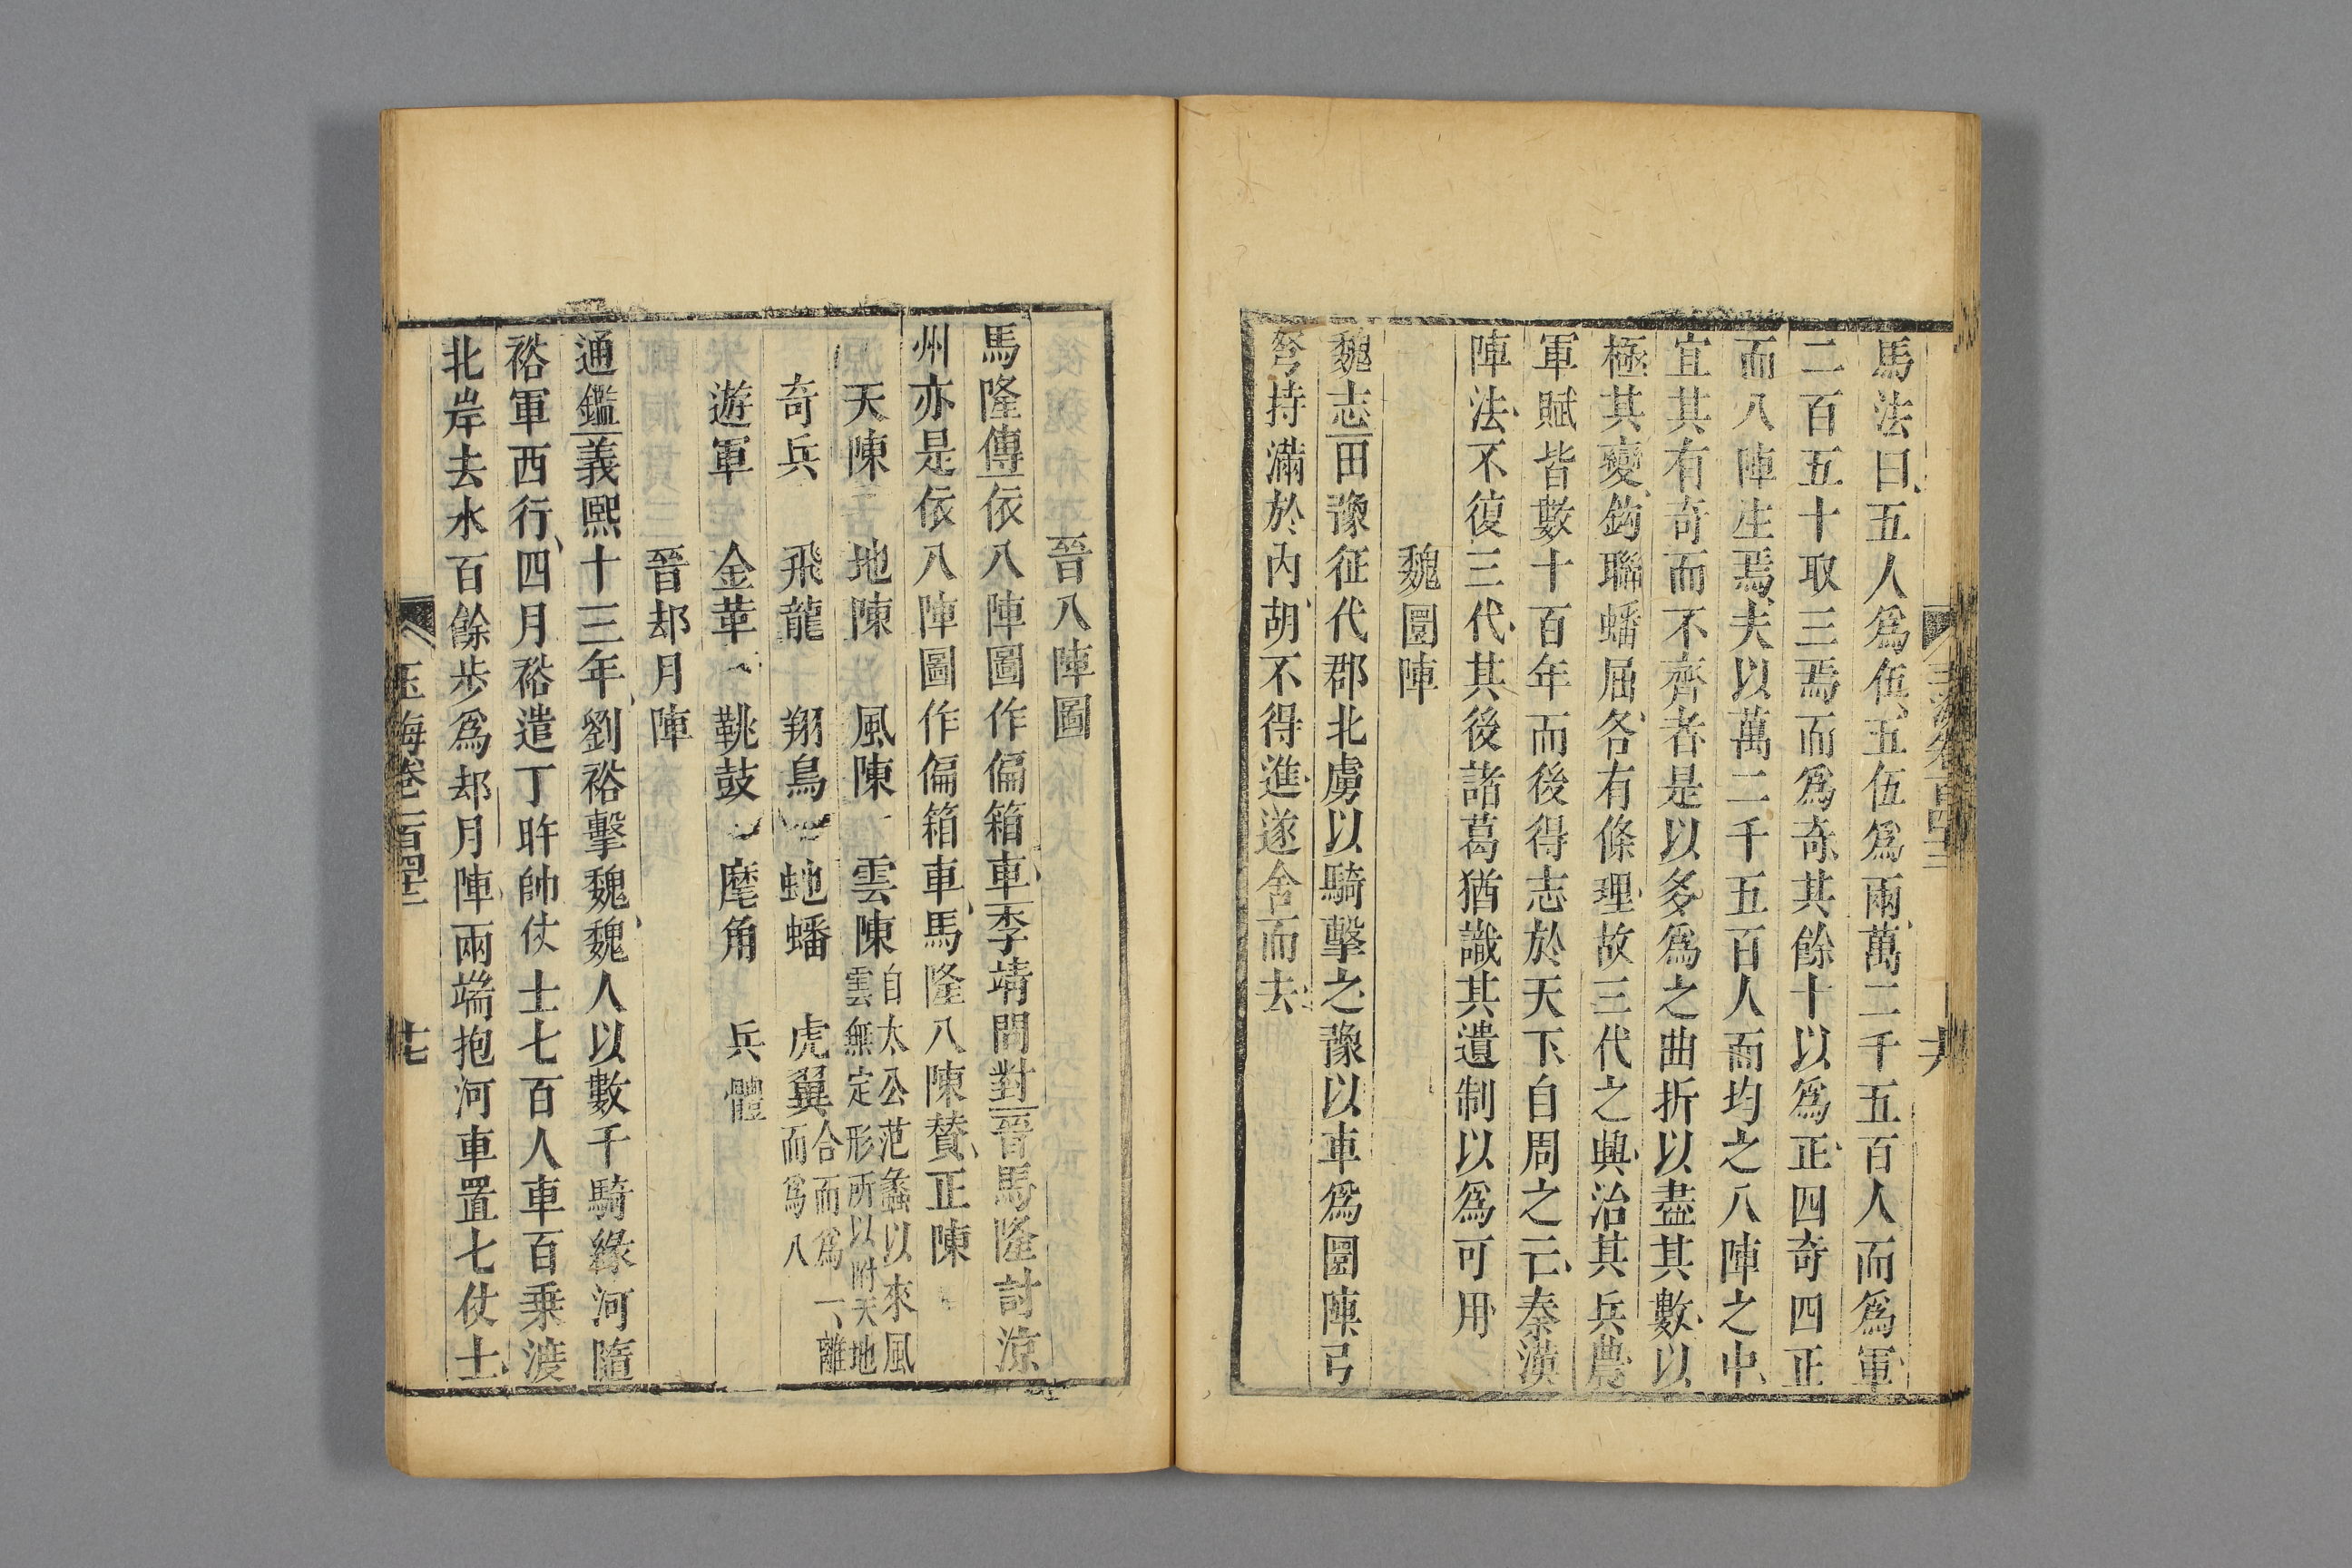 馬法曰五人爲伍五伍爲兩萬二千五百人而爲軍
二百五十取三焉而爲奇其餘十以爲正四奇四正
而八陣生焉夫以萬二千五百人而均之八陣之中
宜其有奇而不齊者是以多爲之曲折以盡其數以
極其變鈎聯蟠屈各有條理故三代之興治其兵農
軍賦皆數十百年而後得志於天下自周之亡秦漢
陣法不復三代其後諸葛猶識其遺制以爲可用
魏圜陣
魏志田豫征代郡北虜以騎擊之豫以車爲圜陳弓
弩持滿於內胡不得進遂舍而去
晉八陣圖
馬隆傳依八陣圖作偏箱車李靖問對晉馬隆討涼
州亦是依八陣圖作偏箱車馬隆八陳贊正陳
天陳 地陳 風陳 雲陳 自太公范蠡以來風
雲無定形所以附天地
奇兵 飛龍 翔鳥 虵蟠 虎翼 合而爲一離
而爲八
遊軍 金革 鞉鼓 麾角 兵體
晉却月陣
通鑑義熙十三年劉裕擊魏魏人以數千騎緣河隨
裕軍西行四月裕遣丁旿帥仗士七百人車百乘渡
北岸去水百餘步爲却月陣兩端抱河車置七仗士
玉海卷一百四十三
十七